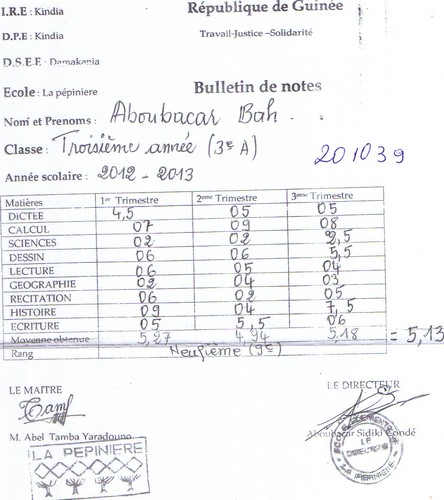 I.R.E : Kindia
République de Guinée
D.P.E : Kindia
Travail-Justice –Solidarité
D.S.E.E : Damakania
Ecole : La pépiniere
Bulletin de notes
Nom et Prenoms : Aboubacar Bah .
Classe : Troisième année (3e A)
201039
Année scolaire : 2012 - 2013
Matières 1er Trimestre 2ème Trimestre 3ème Trimestre
DICTEE 4,5 05 05
CALCUL 07 09 08
SCIENCES 02 02 2,5
DESSIN 06 06 5,5
LECTURE 06 05 04
GEOGRAPHIE 02 04 03
RECITATION 06 02 05
HISTOIRE 09 04 7,5
ECRITURE 05 5,5 06
Moyenne obtenue 5,27 4,94 5.18 = 5,13
Rang Neufième (9e)
LE MAITRE
LE DIRECTEUR
M. Abel Tamba Yaradouno
Aboubacar Sidiki Condé
LA PEPINIERE
LE
DIRECTEUR